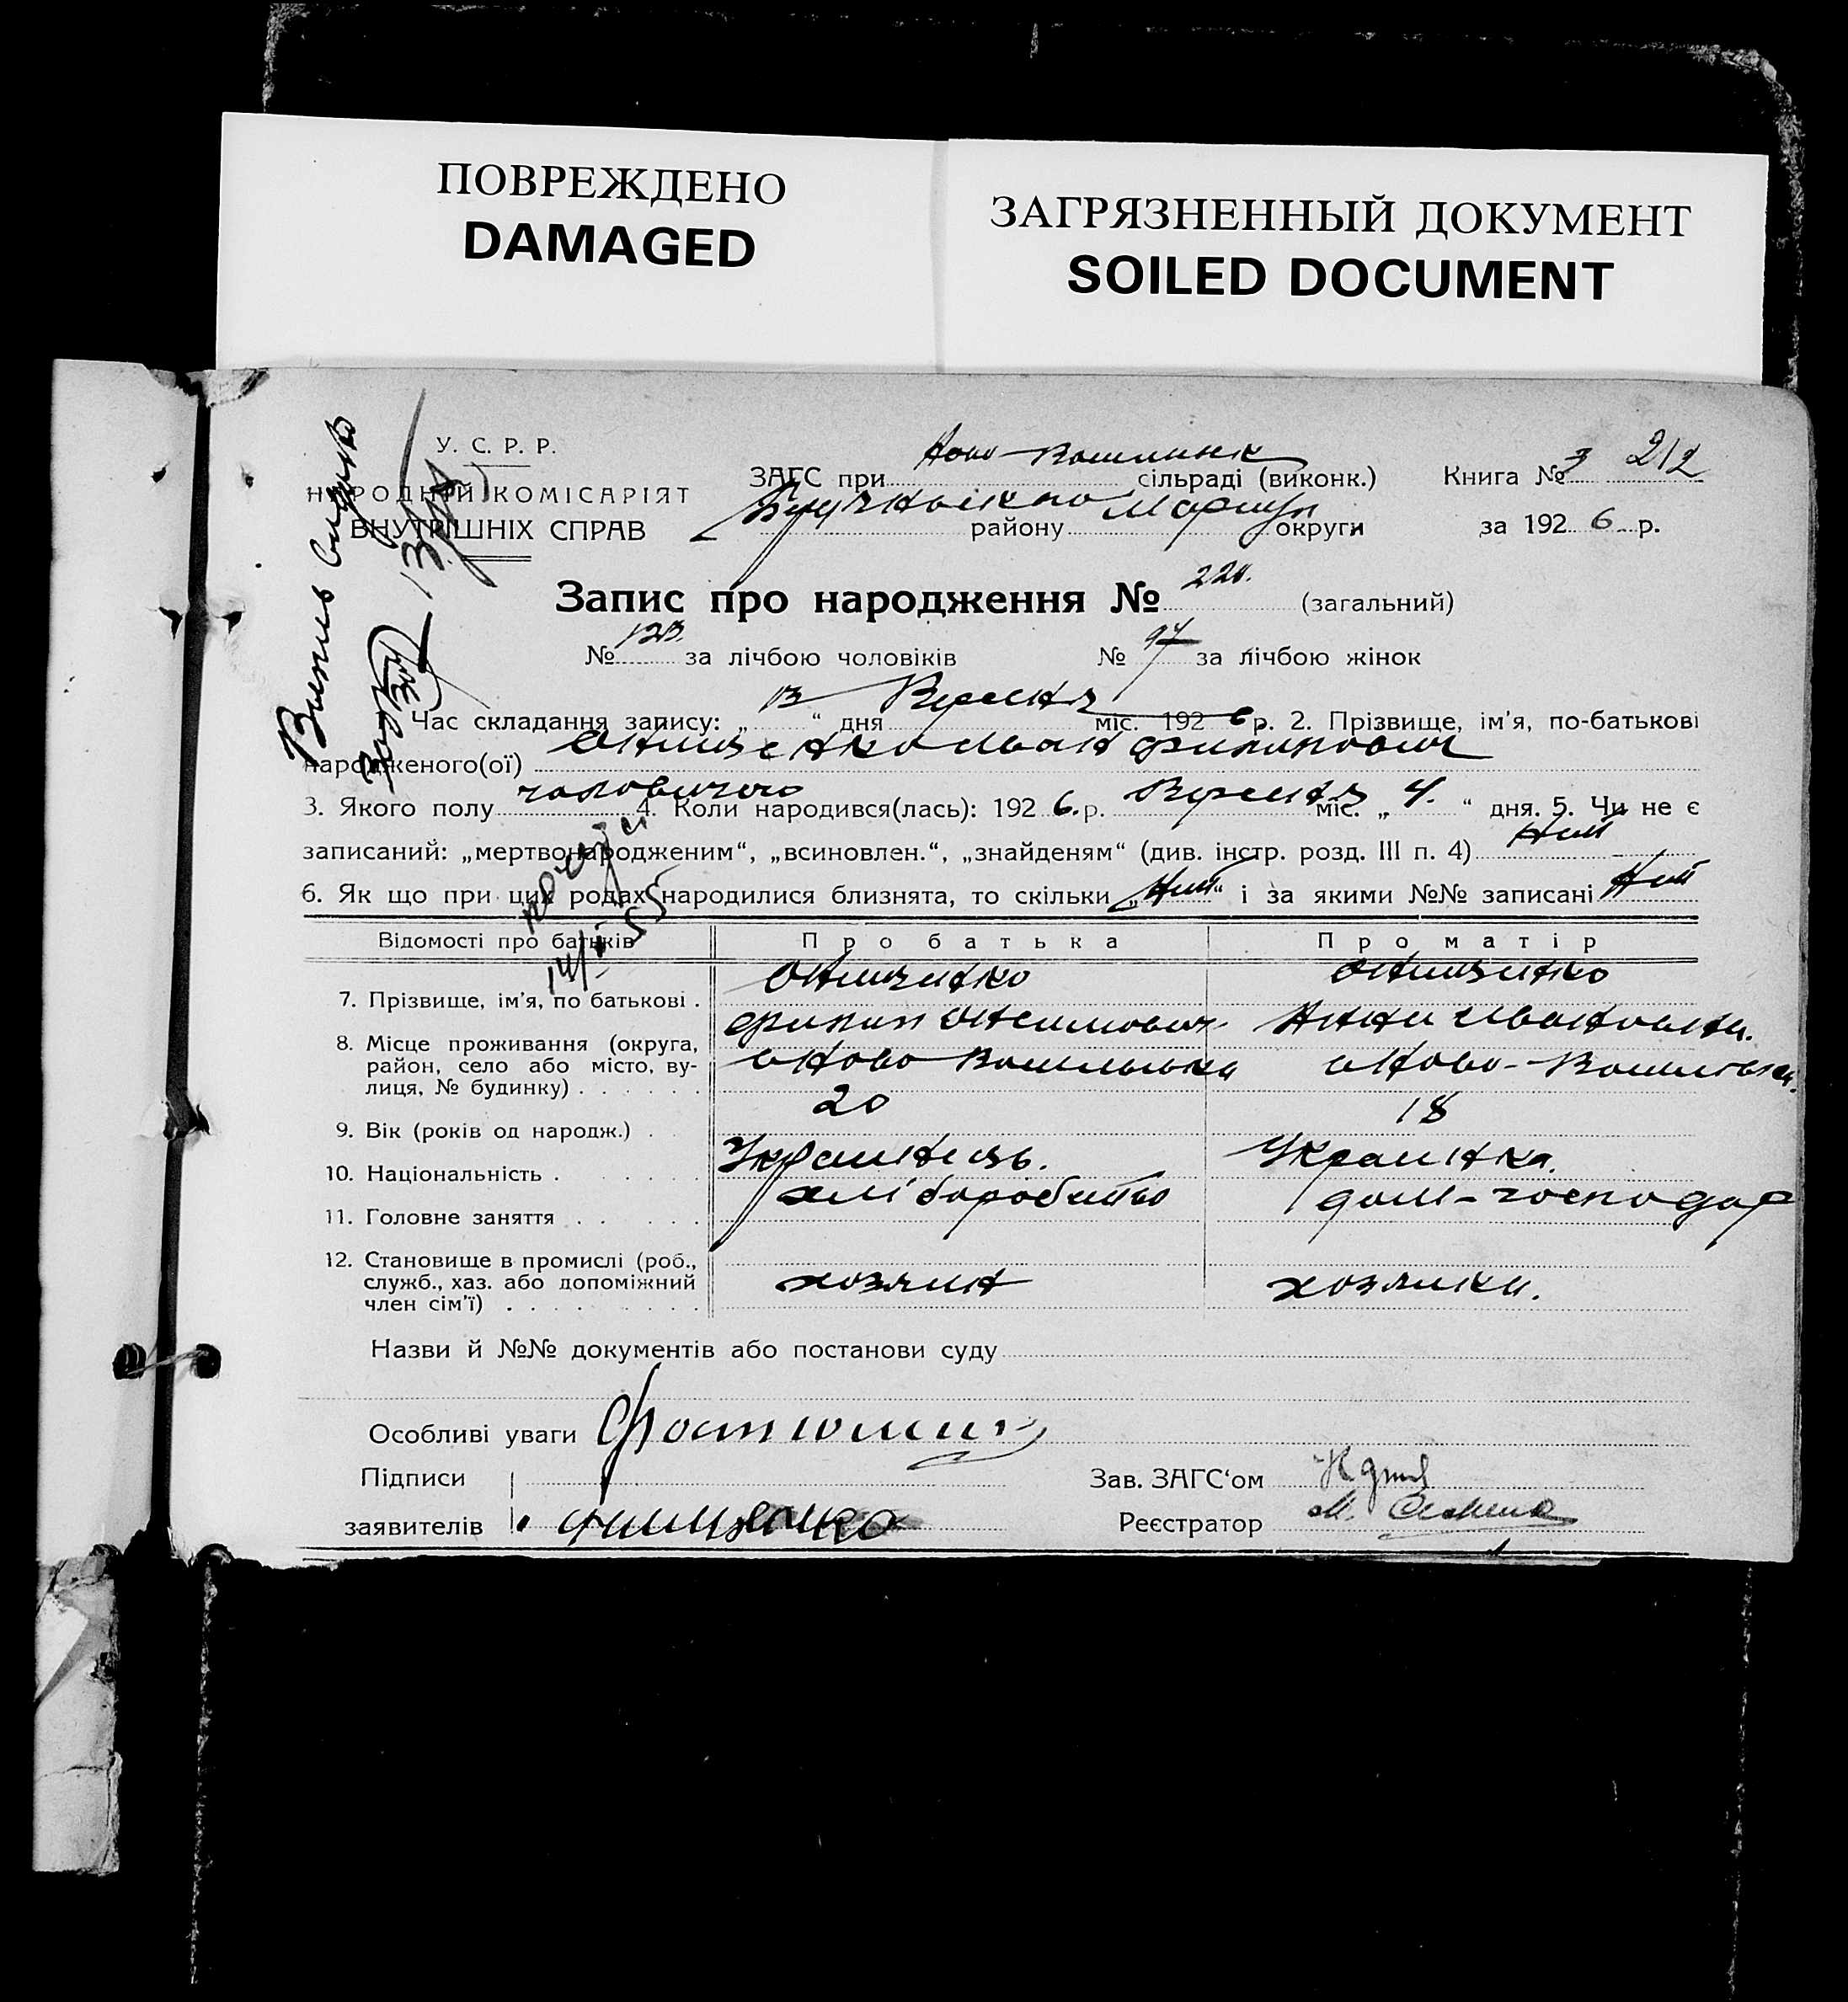 ПОВРЕЖДЕНО
DAMAGED
ЗАГРЯЗНЕННЫЙ ДОКУМЕНТ
SOILED DOCUMENT
У. С. Р. Р.
НАРОДНІЙ КОМІСАРІЯТ
ВНУТРІШНІХ СПРАВ
ЗАГС при Ново- сільраді (виконк.) Книга № 3 212
району Маріуп округи за 1926 р.
Запис про народження № 220. (загальний)
№ 123. за лічбою чоловіків № 97 за лічбою жінок
Час складання запису: „13“ дня Вересня міс. 1926 р. 2. Прізвище, ім'я, по-батькові
народженого(ої) Онищенко Иван Филипович
3. Якого полу чоловичого 4. Коли народився(лась): 1926. р. Вересня міс. „4.“ дня. 5. Чи не є
записаний: „мертвонародженим“, „всиновлен.“, „знайденям“ (див. інстр. розд. III п. 4) Ний
6. Як що при цих родах народилися близнята, то скільки „Ний“ і за якими №№ записані Ний
Відомості про батьків Про батька Про матір
7. Прізвище, ім'я, по батькові . Онищенко Онищенко
Филип Анна Ивановна.
8. Місце проживання (округа, район, село або місто, вулиця, № будинку) . с Ново с Ново-
9. Вік (років од народж.) . 20 18
10. Національність . Украинець. Украинка.
11. Головне заняття . хліборобство дом-господар
12. Становище в промислі (роб., служб., хаз. або допоміжний член сім'ї) . хозяин хозяика.
Назви й №№ документів або постанови суду
Особливі уваги
Підписи Зав. ЗАГС'ом
заявителів Реєстратор